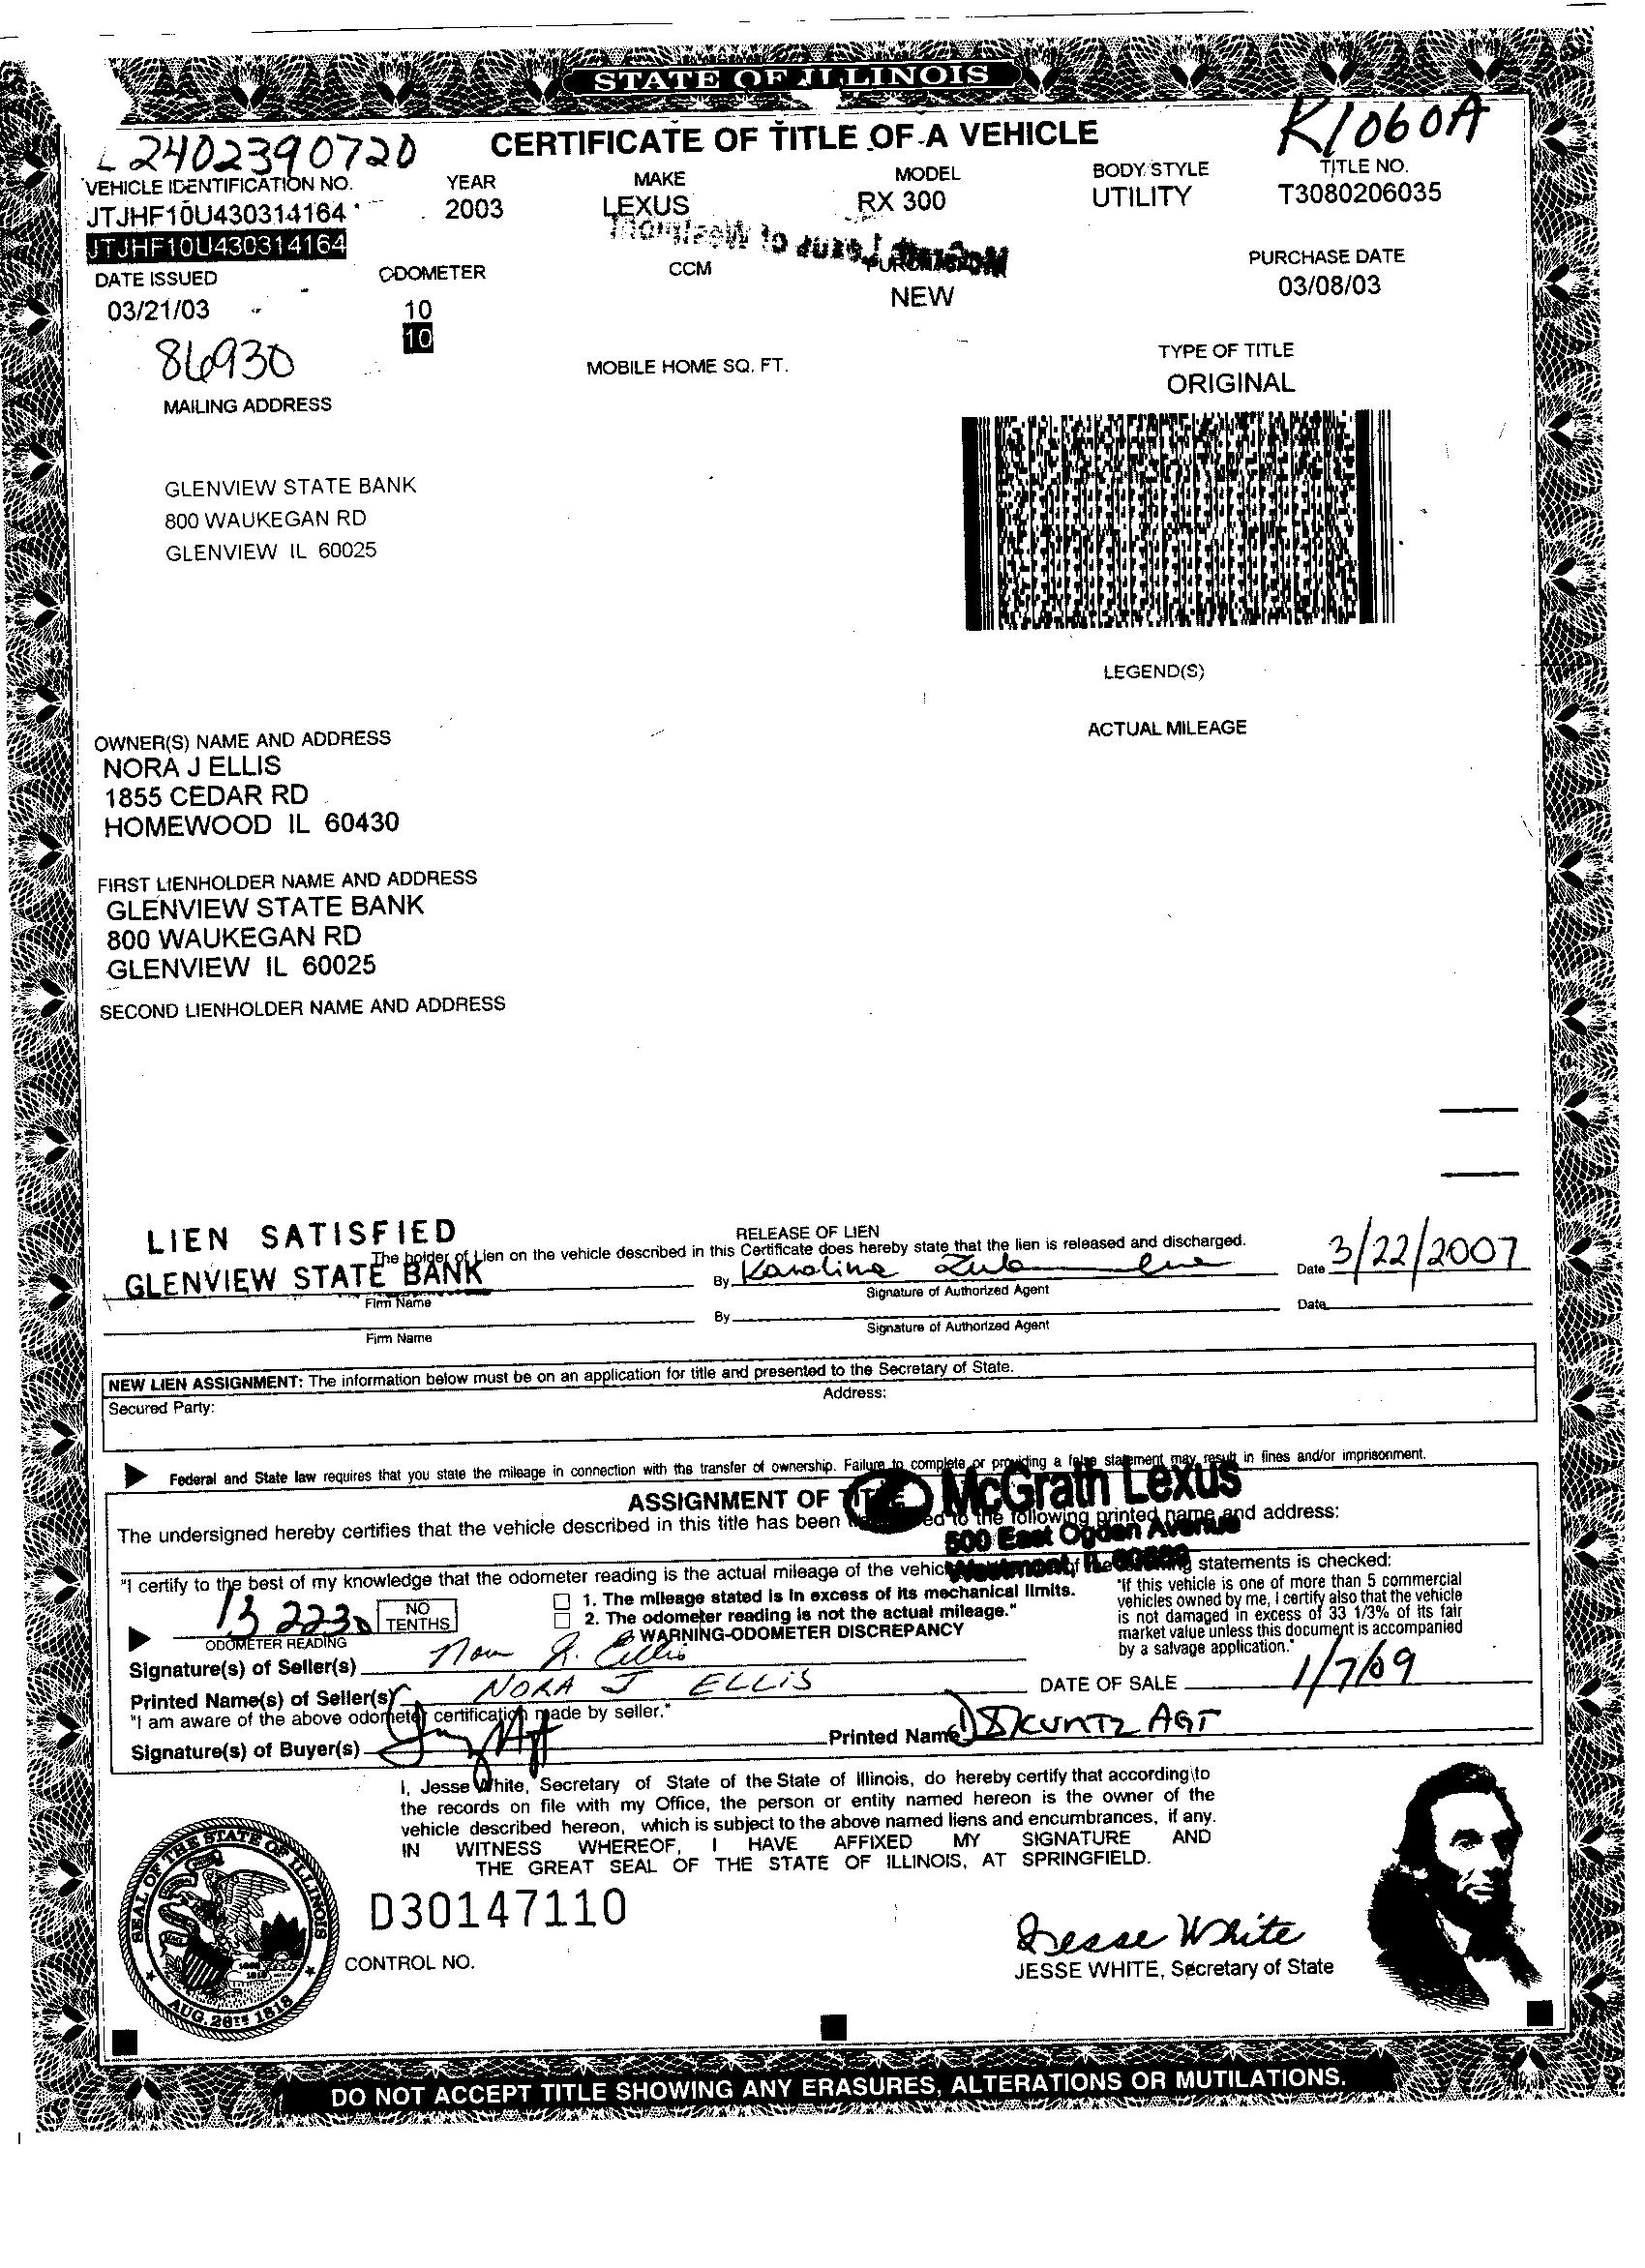 STATE OF ILLINOIS
CERTIFICATE OF TITLE OF A VEHICLE
K1060A
L2402390720
VEHICLE IDENTIFICATION NO. YEAR MAKE MODEL BODY STYLE TITLE NO.
JTJHF10U430314164 2003 LEXUS RX 300 UTILITY T3080206035
JTJHF10U430314164
McGrath Lexus of Westmont
DATE ISSUED ODOMETER CCM PURCHASE DATE
03/21/03 10 NEW 03/08/03
10
86930
MOBILE HOME SQ. FT. TYPE OF TITLE
ORIGINAL
MAILING ADDRESS
GLENVIEW STATE BANK
800 WAUKEGAN RD
GLENVIEW IL 60025
LEGEND(S)
ACTUAL MILEAGE
OWNER(S) NAME AND ADDRESS
NORA J ELLIS
1855 CEDAR RD
HOMEWOOD IL 60430
FIRST LIENHOLDER NAME AND ADDRESS
GLENVIEW STATE BANK
800 WAUKEGAN RD
GLENVIEW IL 60025
SECOND LIENHOLDER NAME AND ADDRESS
LIEN SATISFIED
RELEASE OF LIEN
The holder of Lien on the vehicle described in this Certificate does hereby state that the lien is released and discharged.
GLENVIEW STATE BANK By Karolina Date 3/22/2007
Firm Name Signature of Authorized Agent
By Date
Firm Name Signature of Authorized Agent
NEW LIEN ASSIGNMENT: The information below must be on an application for title and presented to the Secretary of State.
Secured Party: Address:
Federal and State law requires that you state the mileage in connection with the transfer of ownership. Failure to complete or providing a false statement may result in fines and/or imprisonment.
ASSIGNMENT OF TITLE
McGrath Lexus
The undersigned hereby certifies that the vehicle described in this title has been ed to the following printed name and address:
500 East Ogden Avenue
Westmont, IL
"I certify to the best of my knowledge that the odometer reading is the actual mileage of the vehic statements is checked:
132230 NO TENTHS
ODOMETER READING
1. The mileage stated is in excess of its mechanical limits.
2. The odometer reading is not the actual mileage."
WARNING-ODOMETER DISCREPANCY
"If this vehicle is one of more than 5 commercial
vehicles owned by me, I certify also that the vehicle
is not damaged in excess of 33 1/3% of its fair
market value unless this document is accompanied
by a salvage application."
Signature(s) of Seller(s) Nora J. Ellis
Printed Name(s) of Seller(s) NORA J ELLIS DATE OF SALE 1/7/09
"I am aware of the above odometer certification made by seller."
Signature(s) of Buyer(s) Printed Name D SKUNTZ AGT
I, Jesse White, Secretary of State of the State of Illinois, do hereby certify that according to
the records on file with my Office, the person or entity named hereon is the owner of the
vehicle described hereon, which is subject to the above named liens and encumbrances, if any.
IN WITNESS WHEREOF, I HAVE AFFIXED MY SIGNATURE AND
THE GREAT SEAL OF THE STATE OF ILLINOIS, AT SPRINGFIELD.
SEAL OF THE STATE OF ILLINOIS
AUG. 26TH 1818
D30147110
CONTROL NO.
Jesse White
JESSE WHITE, Secretary of State
DO NOT ACCEPT TITLE SHOWING ANY ERASURES, ALTERATIONS OR MUTILATIONS.